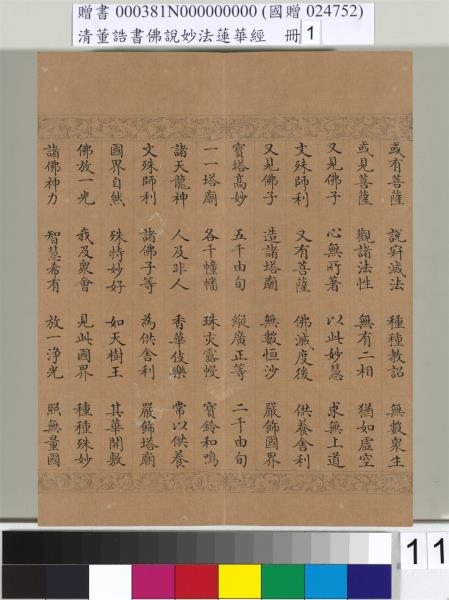 贈書 000381N000000000 (國贈 024752)
清董誥書佛說妙法蓮華經 冊 1
或有菩薩 說寂滅法 種種教詔 無數衆生
或見菩薩 觀諸法性 無有二相 猶如虛空
又見佛子 心無所著 以此妙慧 求無上道
文殊師利 又有菩薩 佛滅度後 供養舍利
又見佛子 造諸塔廟 無數恒沙 嚴飾國界
寶塔高妙 五千由旬 縱廣正等 二千由旬
一一塔廟 各千幢幡 珠交露幔 寶鈴和鳴
諸天龍神 人及非人 香華伎樂 常以供養
文殊師利 諸佛子等 為供舍利 嚴飾塔廟
國界自然 殊特妙好 如天樹王 其華開敷
佛放一光 我及衆會 見此國界 種種殊妙
諸佛神力 智慧希有 放一淨光 照無量國
11